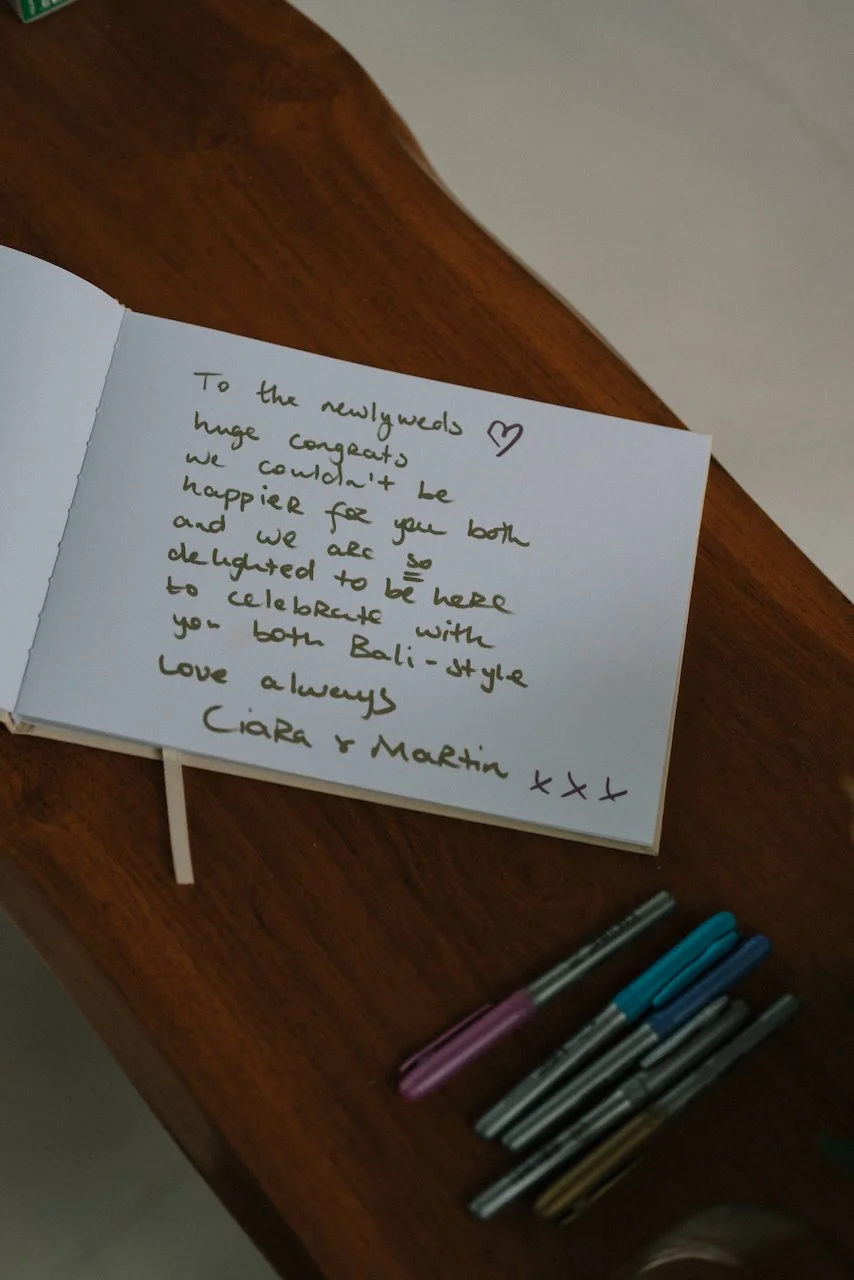 To the newlyweds ♡
huge congrats
we couldn't be
happier for you both
and we are so
delighted to be here
to celebrate with
you both Bali-style
Love always
Ciara & Martin xxx